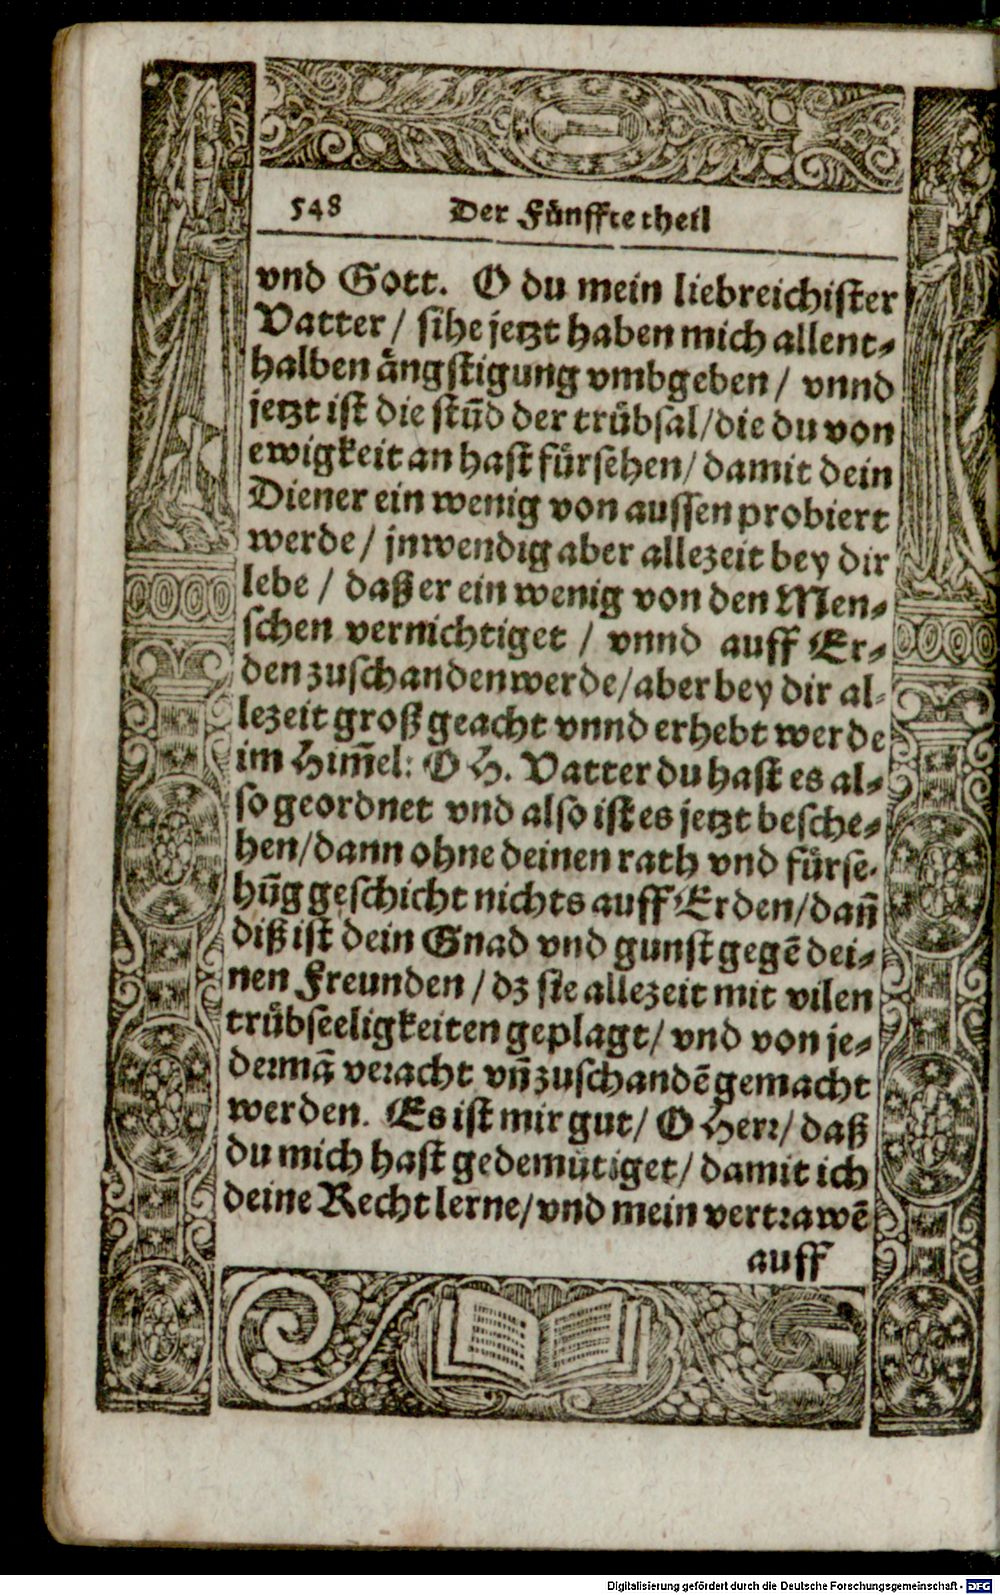 548 Der Fünffte theil
vnd Gott. O du mein liebreichister
Vatter / sihe jetzt haben mich allent⸗
halben ängstigung vmbgeben / vnnd
jetzt ist die stūd der trübsal/die du von
ewigkeit an hast fürsehen/ damit dein
Diener ein wenig von aussen probiert
werde / jnwendig aber allezeit bey dir
lebe / daß er ein wenig von den Men⸗
schen vernichtiget / vnnd auff Er⸗
den zuschanden werde/aber bey dir al⸗
lezeit groß geacht vnnd erhebt werde
im Him̄el: O H. Vatter du hast es al⸗
so geordnet vnd also ist es jetzt besche⸗
hen/dann ohne deinen rath vnd fürse⸗
hūg geschicht nichts auff Erden/dan̄
diß ist dein Gnad vnd gunst gegē dei⸗
nen Freunden / dz sie allezeit mit vilen
trübseeligkeiten geplagt/ vnd von je⸗
dermā veracht vn̄ zuschandē gemacht
werden. Es ist mir gut/ O Herr/ daß
du mich hast gedemütiget/ damit ich
deine Recht lerne/vnd mein vertrawē
auff
Digitalisierung gefördert durch die Deutsche Forschungsgemeinschaft - DFG